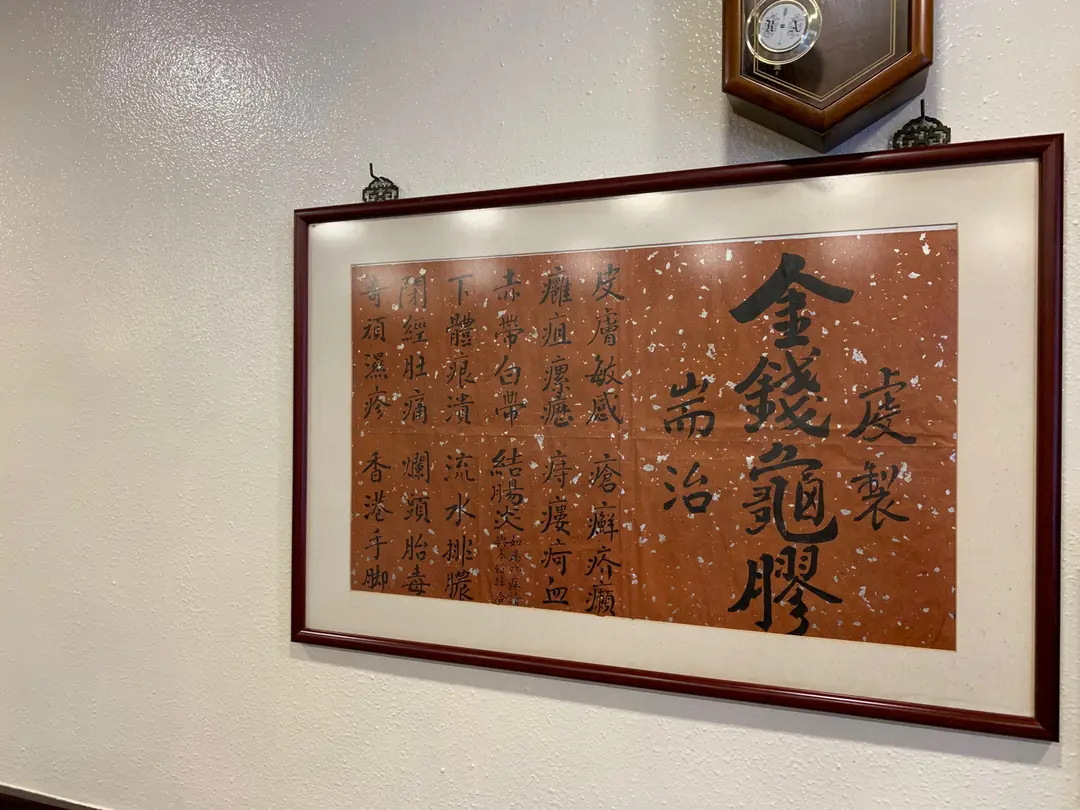 虔製
金錢龜膠
耑治
皮膚敏感 瘡癬疥癩
癰疽瘰癧 痔瘻疴血
赤帶白帶 結腸炎
下體痕潰 流水排膿
閉經肚痛 爛頭胎毒
奇頑濕疹 香港手脚